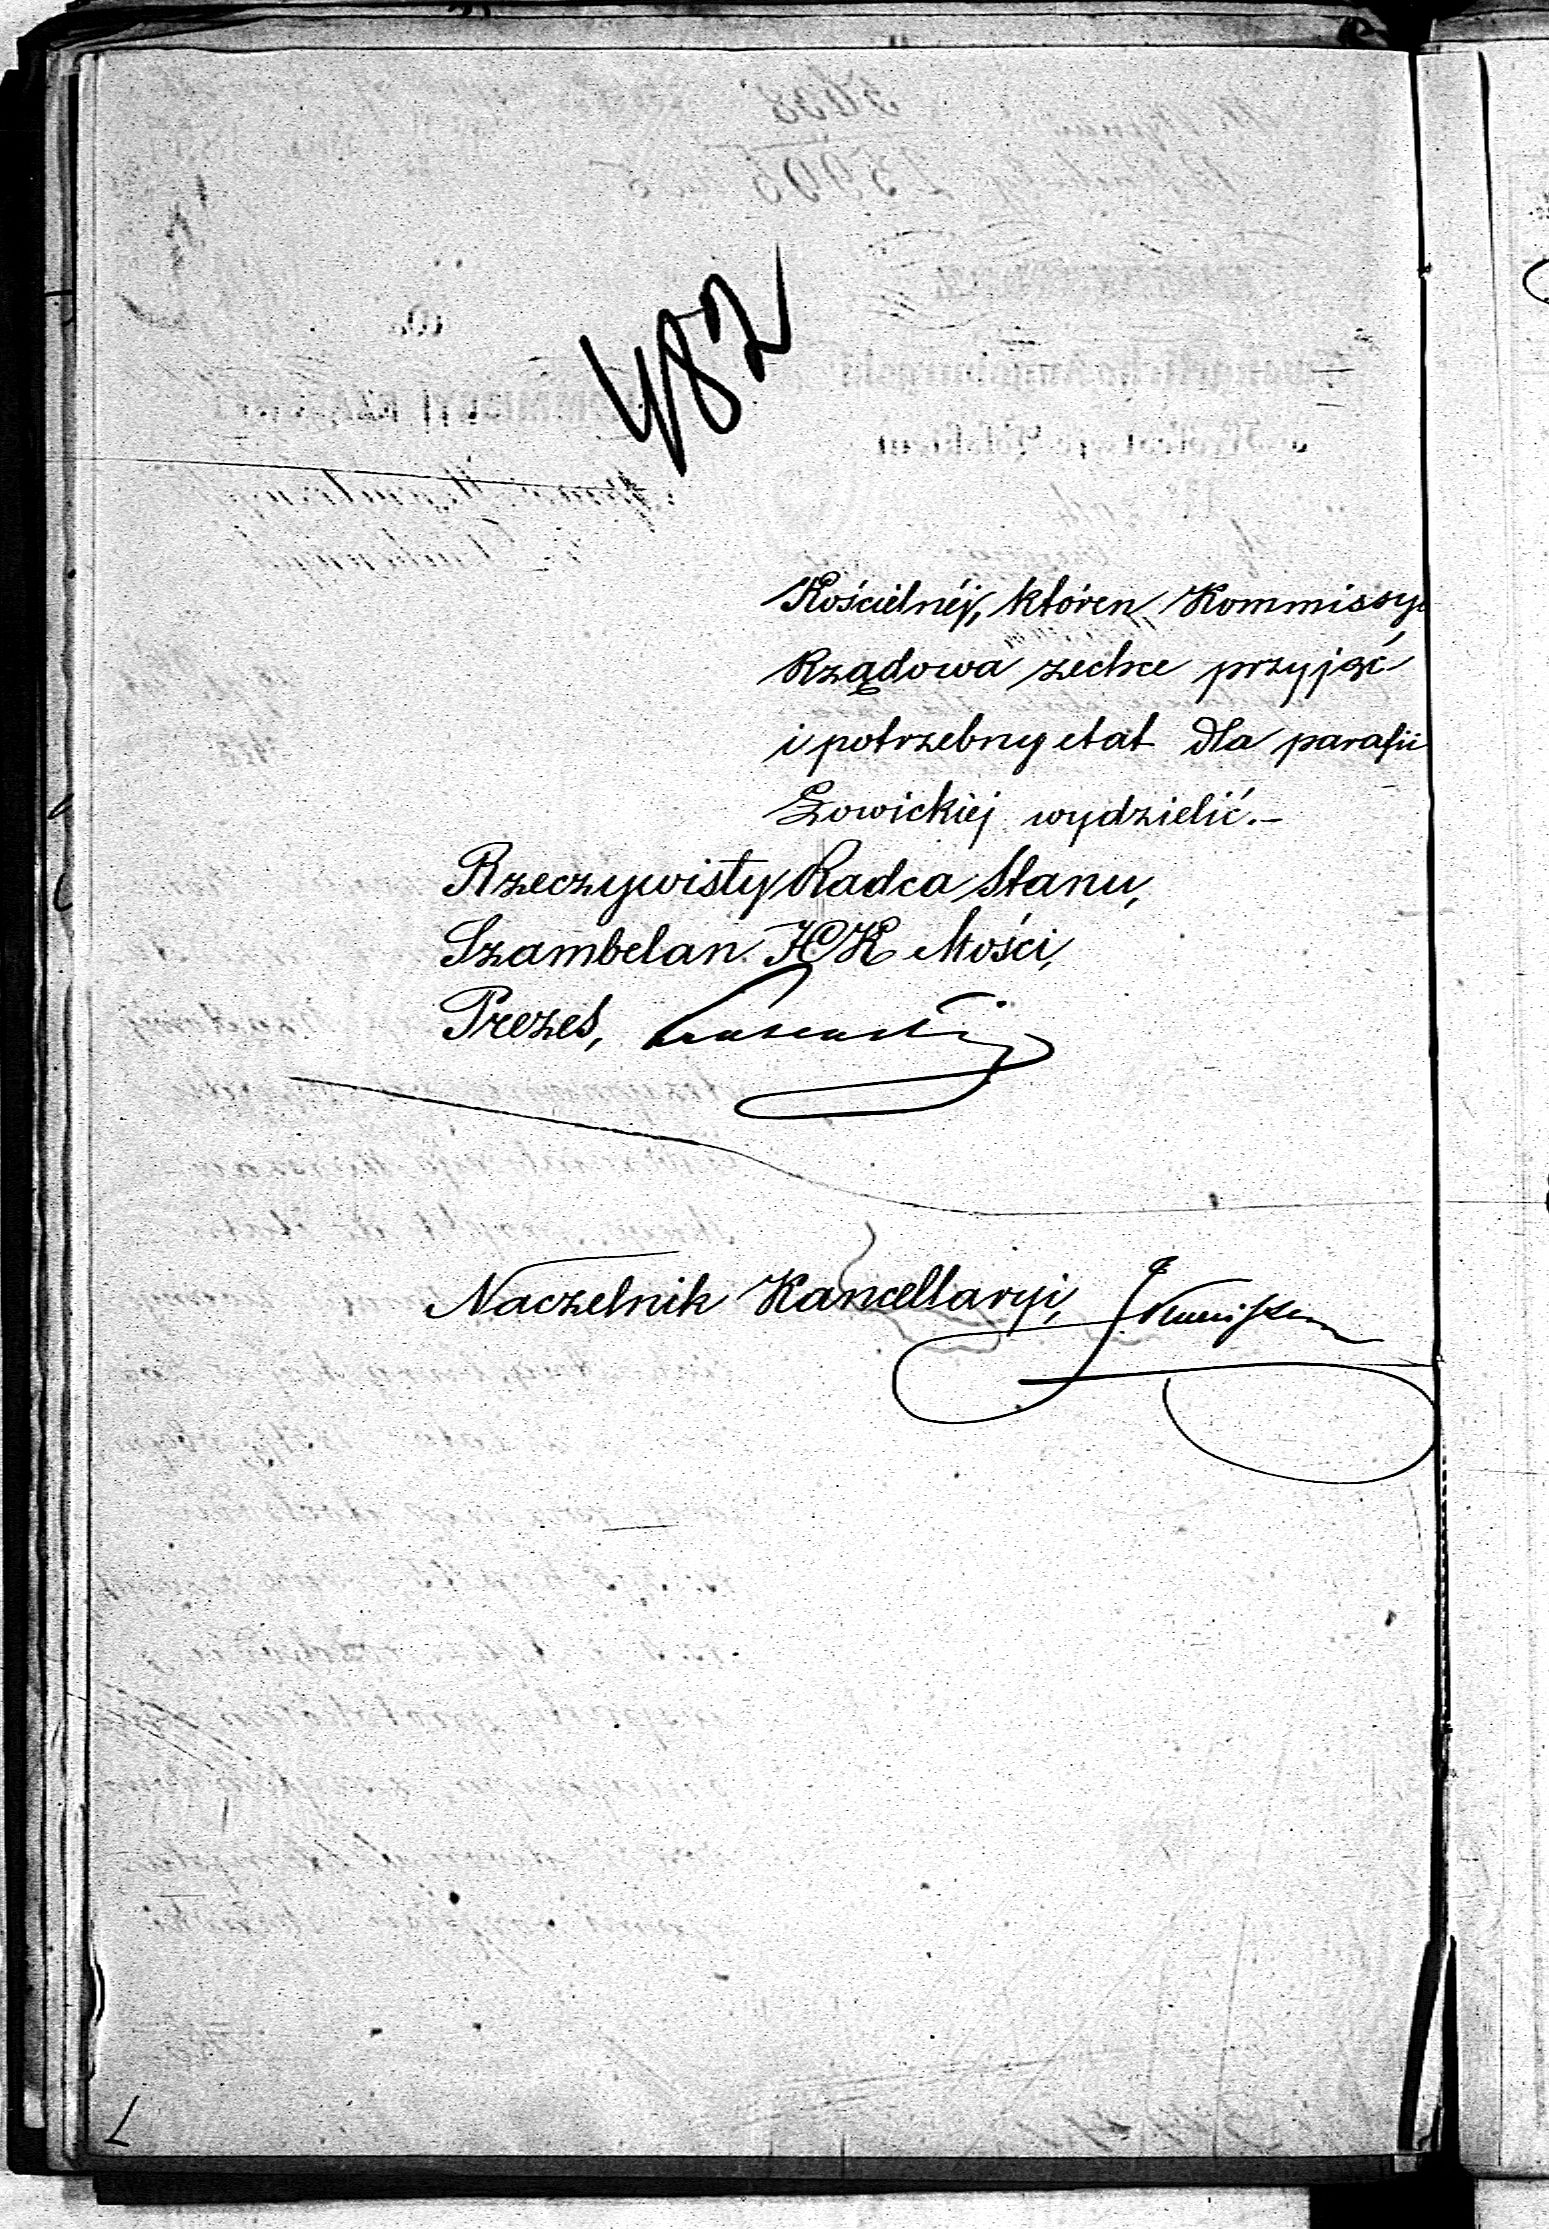 482
Kościelnéj, któren Kommissya
Rządowa zechce przyjąć
i potrzebny etat dla parafii
Łowickiéj wydzielić.–
Rzeczywisty Radca Stanu,
Szambelan JCK Mości,
Prezes,
Naczelnik Kancellaryi,